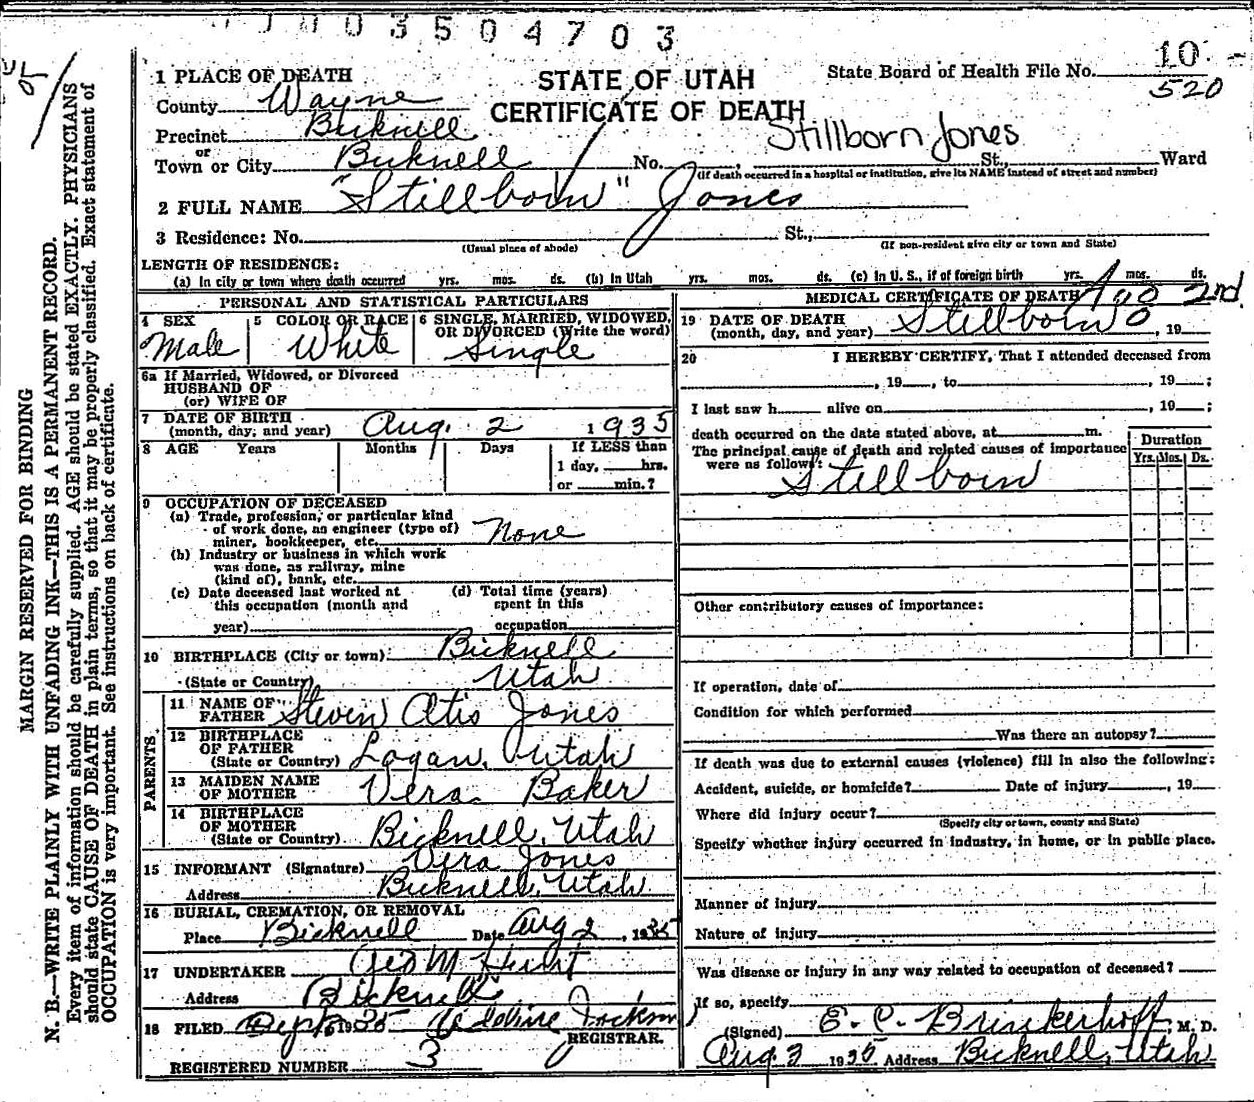 003504703
10
1 PLACE OF DEATH
STATE OF UTAH
State Board of Health File No.
520
County Wayne
CERTIFICATE OF DEATH
Precinct Bicknell
Stillborn Jones
or
Town or City Bicknell No. , St., Ward
(If death occurred in a hospital or institution, give its NAME instead of street and number)
2 FULL NAME "Stillborn" Jones
3 Residence: No. St.,
(Usual place of abode) (If non-resident give city or town and State)
LENGTH OF RESIDENCE:
(a) In city or town where death occurred yrs. mos. ds. (b) In Utah yrs. mos. ds. (c) In U. S., if of foreign birth yrs. mos. ds.
PERSONAL AND STATISTICAL PARTICULARS
4 SEX 5 COLOR OR RACE 6 SINGLE, MARRIED, WIDOWED,
OR DIVORCED (Write the word)
Male White Single
6a If Married, Widowed, or Divorced
HUSBAND OF
(or) WIFE OF
7 DATE OF BIRTH
(month, day, and year) Aug. 2 1935
8 AGE Years Months Days If LESS than
1 day, hrs.
or min.?
9 OCCUPATION OF DECEASED
(a) Trade, profession, or particular kind
of work done, as engineer (type of)
miner, bookkeeper, etc. None
(b) Industry or business in which work
was done, as railway, mine
(kind of), bank, etc.
(c) Date deceased last worked at (d) Total time (years)
this occupation (month and spent in this
year) occupation
10 BIRTHPLACE (City or town) Bicknell
(State or Country) Utah
PARENTS.
11 NAME OF
FATHER Steven Otis Jones
12 BIRTHPLACE
OF FATHER
(State or Country) Logan, Utah
13 MAIDEN NAME
OF MOTHER Vera Baker
14 BIRTHPLACE
OF MOTHER
(State or Country) Bicknell, Utah
15 INFORMANT (Signature) Vera Jones
Address Bicknell, Utah
16 BURIAL, CREMATION, OR REMOVAL
Place Bicknell Date Aug 2, 1935
17 UNDERTAKER Geo M Hunt
Address Bicknell
18 FILED Sept 1935 Jackson
REGISTRAR.
REGISTERED NUMBER 3
MEDICAL CERTIFICATE OF DEATH
Aug 2nd.
19 DATE OF DEATH
(month, day, and year) Stillborn , 19
20 I HEREBY CERTIFY, That I attended deceased from
, 19 , to , 19 ;
I last saw h alive on , 19 ;
death occurred on the date stated above, at m.
The principal cause of death and related causes of importance
were as follows:
Duration
Yrs. Mos. Ds.
Stillborn
Other contributory causes of importance:
If operation, date of
Condition for which performed
Was there an autopsy?
If death was due to external causes (violence) fill in also the following:
Accident, suicide, or homicide? Date of injury , 19
Where did injury occur?
(Specify city or town, county and State)
Specify whether injury occurred in industry, in home, or in public place.
Manner of injury
Nature of injury
Was disease or injury in any way related to occupation of deceased?
If so, specify
(Signed) E. C. Brinkerhoff, M. D.
Aug 3 1935 Address Bicknell, Utah
MARGIN RESERVED FOR BINDING
N. B.—WRITE PLAINLY WITH UNFADING INK—THIS IS A PERMANENT RECORD.
Every item of information should be carefully supplied. AGE should be stated EXACTLY. PHYSICIANS
should state CAUSE OF DEATH in plain terms, so that it may be properly classified. Exact statement of
OCCUPATION is very important. See instructions on back of certificate.